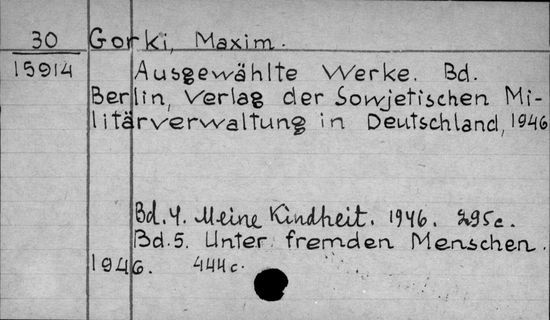 30 Gorki, Maxim.
15914 Ausgewählte Werke. Bd.
Berlin, Verlag der Sowjetischen Mi-
litärverwaltung in Deutschland, 1946
Bd. 4. Meine Kindheit. 1946. 295c.
Bd. 5. Unter fremden Menschen.
1946. 444c.